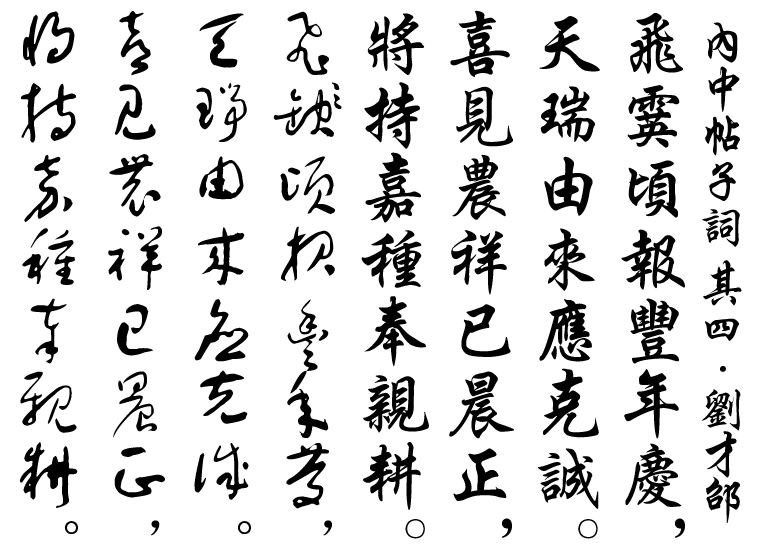 內中帖子詞 其四·劉才邵
飛霙頃報豐年慶，
天瑞由來應克誠。
喜見農祥已晨正，
將持嘉種奉親耕。
飛霙頃報豐年慶，
天瑞由來應克誠。
喜見農祥已晨正，
將持嘉種奉親耕。